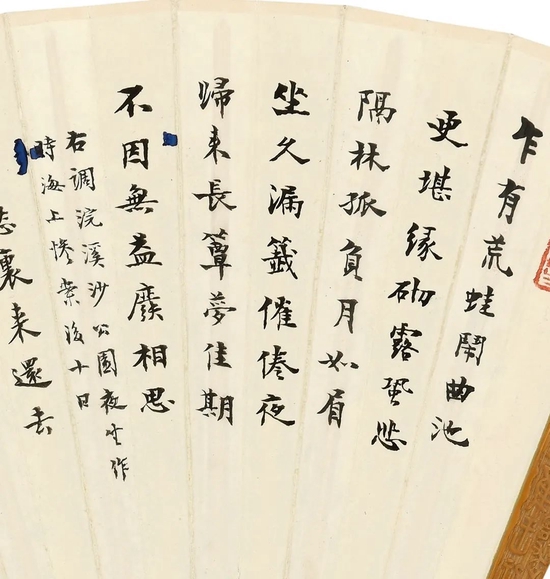 乍有荒蛙鬧曲池
更堪緣砌露蛩悲
隔林孤負月如眉
坐久漏籤催倦夜
歸来長簟夢佳期
不因無益廢相思
右調浣溪沙公園夜坐作
時海上慘案後十日
裏来還去